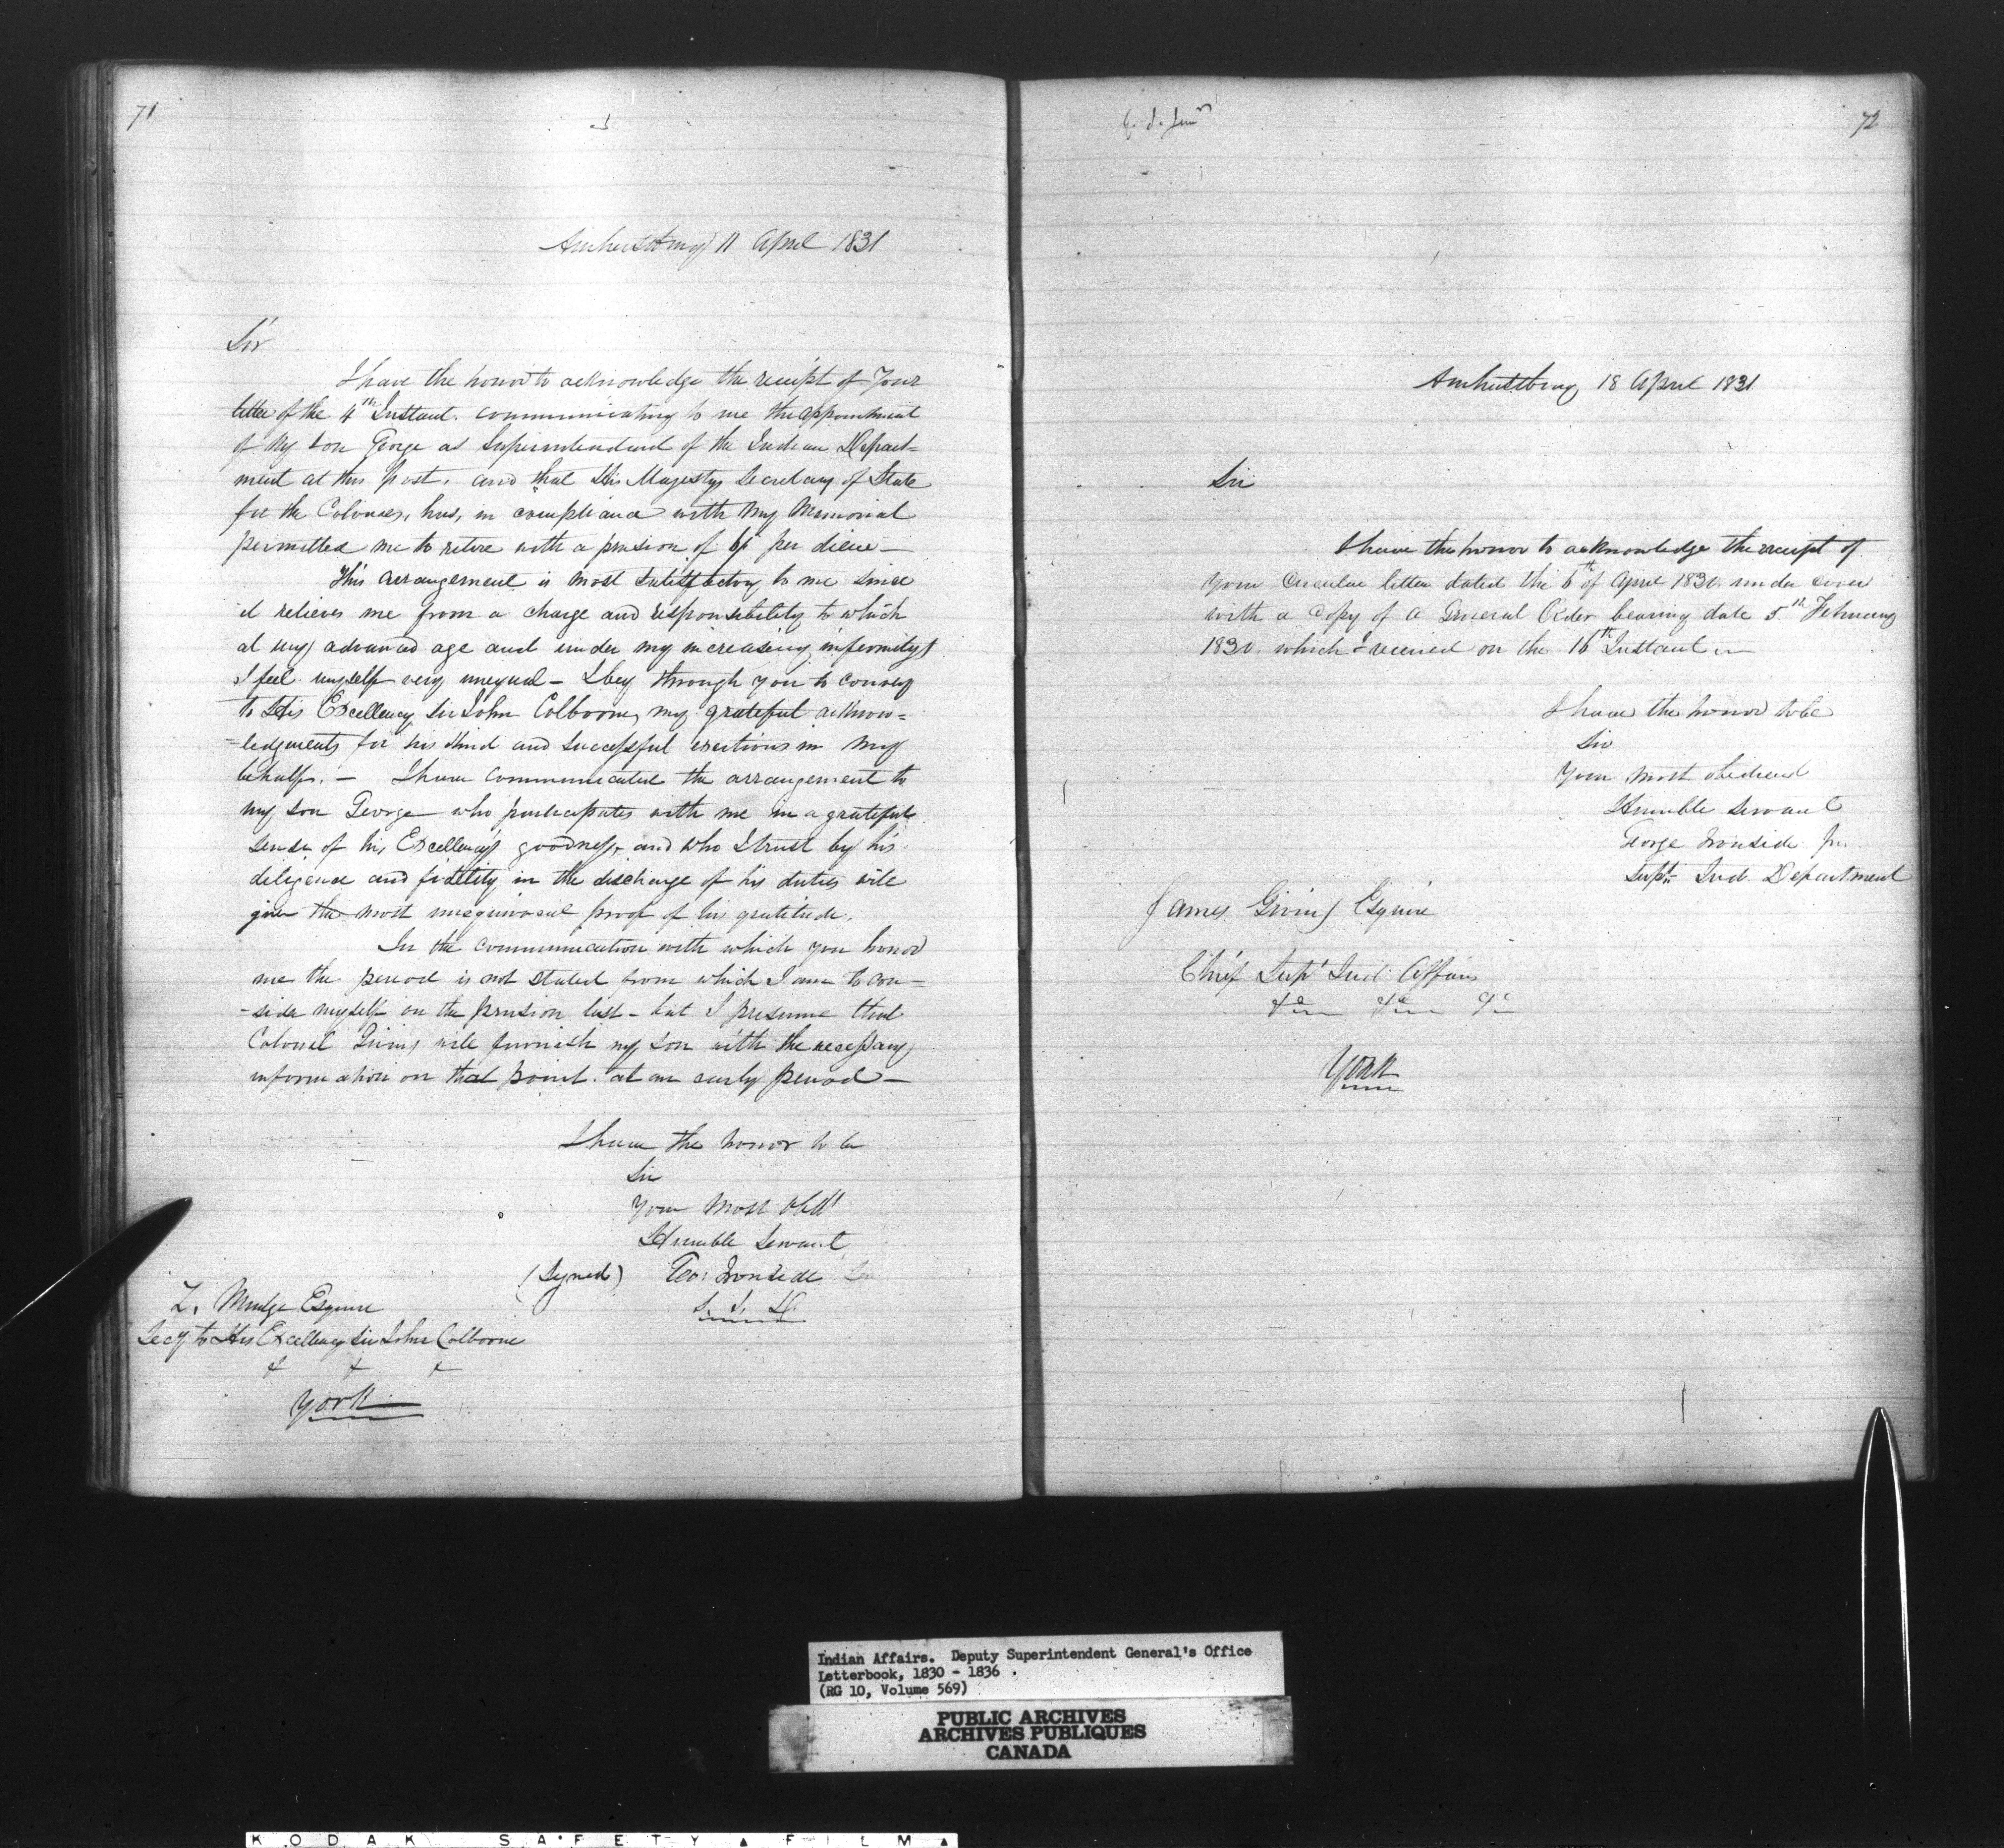 71
Amherstburg 11 April 1831
Sir
I have the honor to acknowledge the receipt of Your
letter of the 4th Instant. communicating to me the appointment
of My Son George as Superintendend of the Indian Depart=
ment at this Post. and that His Majestys Secretary of State
for the Colonies, has, in compliance with My Memorial
permitted me to retire with a pension of per diem —
This arrangement is most satisfactory to me since
it relieves me from a charge and responsibility to which
at my advanced age and under my increasing infirmitys
I feel myself very unequal — I beg through you to convey
to His Excellency Sir John Colborne, my grateful acknow=
=ledgments for his kind and successful exertions in my
behalf. — I have communicated the arrangement to
my son George who participates with me in a grateful
sense of his Excellency's goodness, and who I trust by his
diligence and fidelity in the discharge of his duties will
give the most unequivocal proof of his gratitude.
In the communication with which you honor
me the period is not stated from which I am to con—
-sider myself on the pension list — but I presume that
Colonel Givins will furnish my son with the necessary
information on that point. at an early period —
I have the honor to be
Sir
Your Most Obdt
Humble Servant
(Signed) Geo: Ironside Sr
S. I. D.
Z. Mudge Esquire
Secy to His Excellency Sir John Colborne
& & &
York
G. I. Junr
72
Amherstburg 18 April 1831
Sir
I have the honor to acknowledge the receipt of
your Circular letter dated the 6th of April 1830. under cover
with a Copy of a General Order bearing date 5th February
1830. which I received on the 16th Instant —
I have the honor to be
Sir
Your most obedient
Humble Servant
George Ironside Jnr
Supt. Ind. Department
James Givins Esquire
Chief Supt Ind. Affairs
&c &c &c
York
Indian Affairs. Deputy Superintendent General's Office
Letterbook, 1830 - 1836.
(RG 10, Volume 569)
PUBLIC ARCHIVES
ARCHIVES PUBLIQUES
CANADA
KODAK SAFETY ▲ FILM ▲